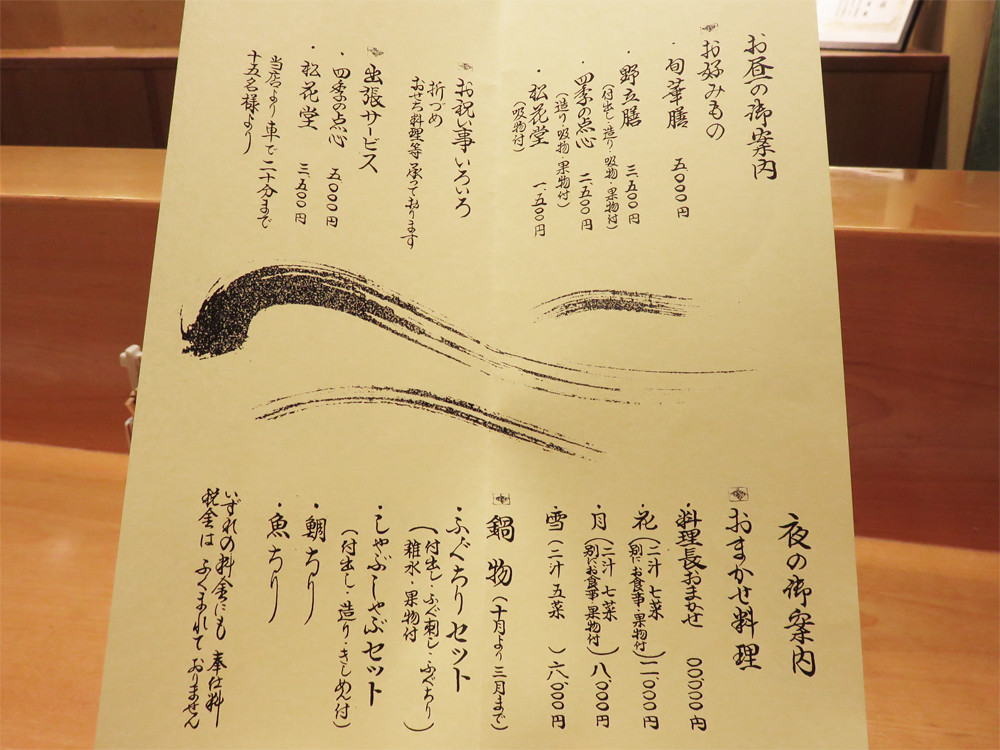 お昼の御案内
お好みもの
・旬華膳 五、〇〇〇円
・野立膳 三、五〇〇円
(付出し・造り・吸物・果物付)
・四季の点心 二、五〇〇円
(造り・吸物・果物付)
・松花堂 一、五〇円
(吸物付)
お祝い事いろいろ
折づめ
おせち料理等承っております
出張サービス
・四季の点心 五〇〇〇円
・松花堂 三、五〇〇円
当店より車で二十分まで
十五名様より
夜の御案内
おまかせ料理
・料理長おまかせ 〇〇、〇〇〇円
・花(二汁七菜
別にお食事・果物付)一二、〇〇〇円
・月(二汁七菜
別にお食事・果物付)八、〇〇〇円
雪(二汁五菜)六、〇〇〇円
鍋物(十月より三月まで)
・ふぐちりセット
(付出し・ふぐ刺し・ふぐちり
雑水・果物付)
・しゃぶしゃぶセット
(付出し・造り・きしめん付)
・鯛ちり
・魚ちり
いずれの料金にも奉仕料
税金はふくまれておりません